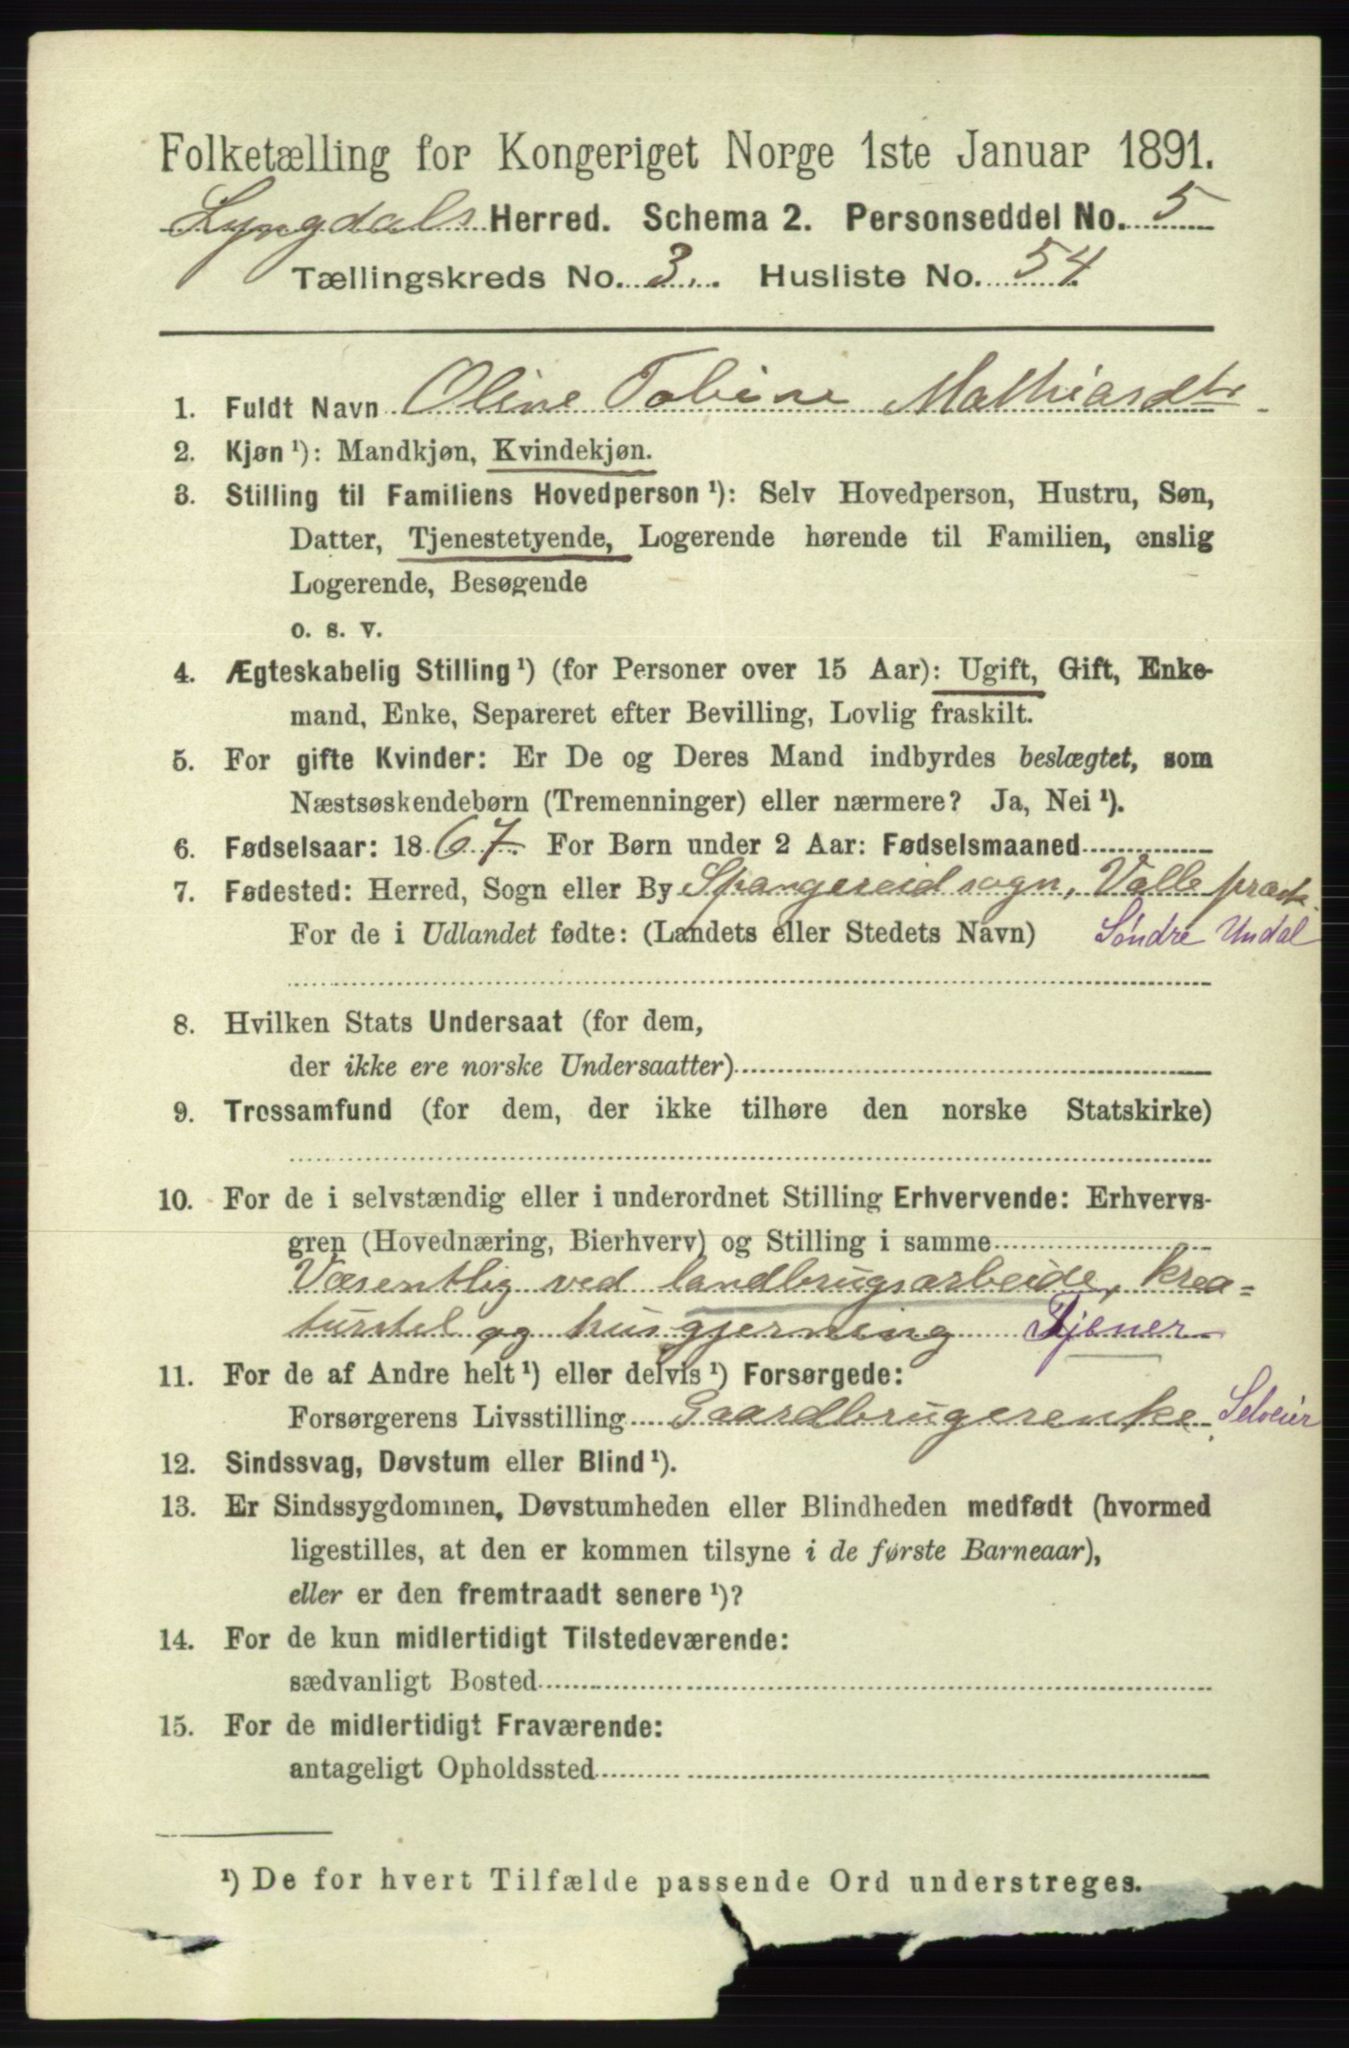 Folketælling for Kongeriget Norge 1ste Januar 1891.
Lyngdals Herred. Schema 2. Personseddel No. 5
Tællingskreds No. 3. Husliste No. 54
1. Fuldt Navn Oline Tobine Mathiasdtr
2. Kjøn ¹): Mandkjøn, Kvindekjøn.
3. Stilling til Familiens Hovedperson ¹): Selv Hovedperson, Hustru, Søn,
Datter, Tjenestetyende, Logerende hørende til Familien, enslig
Logerende, Besøgende
o. s. v.
4. Ægteskabelig Stilling ¹) (for Personer over 15 Aar): Ugift, Gift, Enke-
mand, Enke, Separeret efter Bevilling, Lovlig fraskilt.
5. For gifte Kvinder: Er De og Deres Mand indbyrdes beslægtet, som
Næstsøskendebørn (Tremenninger) eller nærmere? Ja, Nei ¹).
6. Fødselsaar: 1867 For Børn under 2 Aar: Fødselsmaaned
7. Fødested: Herred, Sogn eller By Spangereid sogn, Valle præst.
For de i Udlandet fødte: (Landets eller Stedets Navn) Söndre Undal
8. Hvilken Stats Undersaat (for dem,
der ikke ere norske Undersaatter)
9. Trossamfund (for dem, der ikke tilhøre den norske Statskirke)
10. For de i selvstændig eller i underordnet Stilling Erhvervende: Erhvervs-
gren (Hovednæring, Bierhverv) og Stilling i samme
Væsentlig ved landbrugsarbeide, krea=
turstel og husgjerning Tjener
11. For de af Andre helt ¹) eller delvis ¹) Forsørgede:
Forsørgerens Livsstilling Gaardbrugerenke. Selveier
12. Sindssvag, Døvstum eller Blind ¹).
13. Er Sindssygdommen, Døvstumheden eller Blindheden medfødt (hvormed
ligestilles, at den er kommen tilsyne i de første Barneaar),
eller er den fremtraadt senere ¹)?
14. For de kun midlertidigt Tilstedeværende:
sædvanligt Bosted
15. For de midlertidigt Fraværende:
antageligt Opholdssted
¹) De for hvert Tilfælde passende Ord understreges.